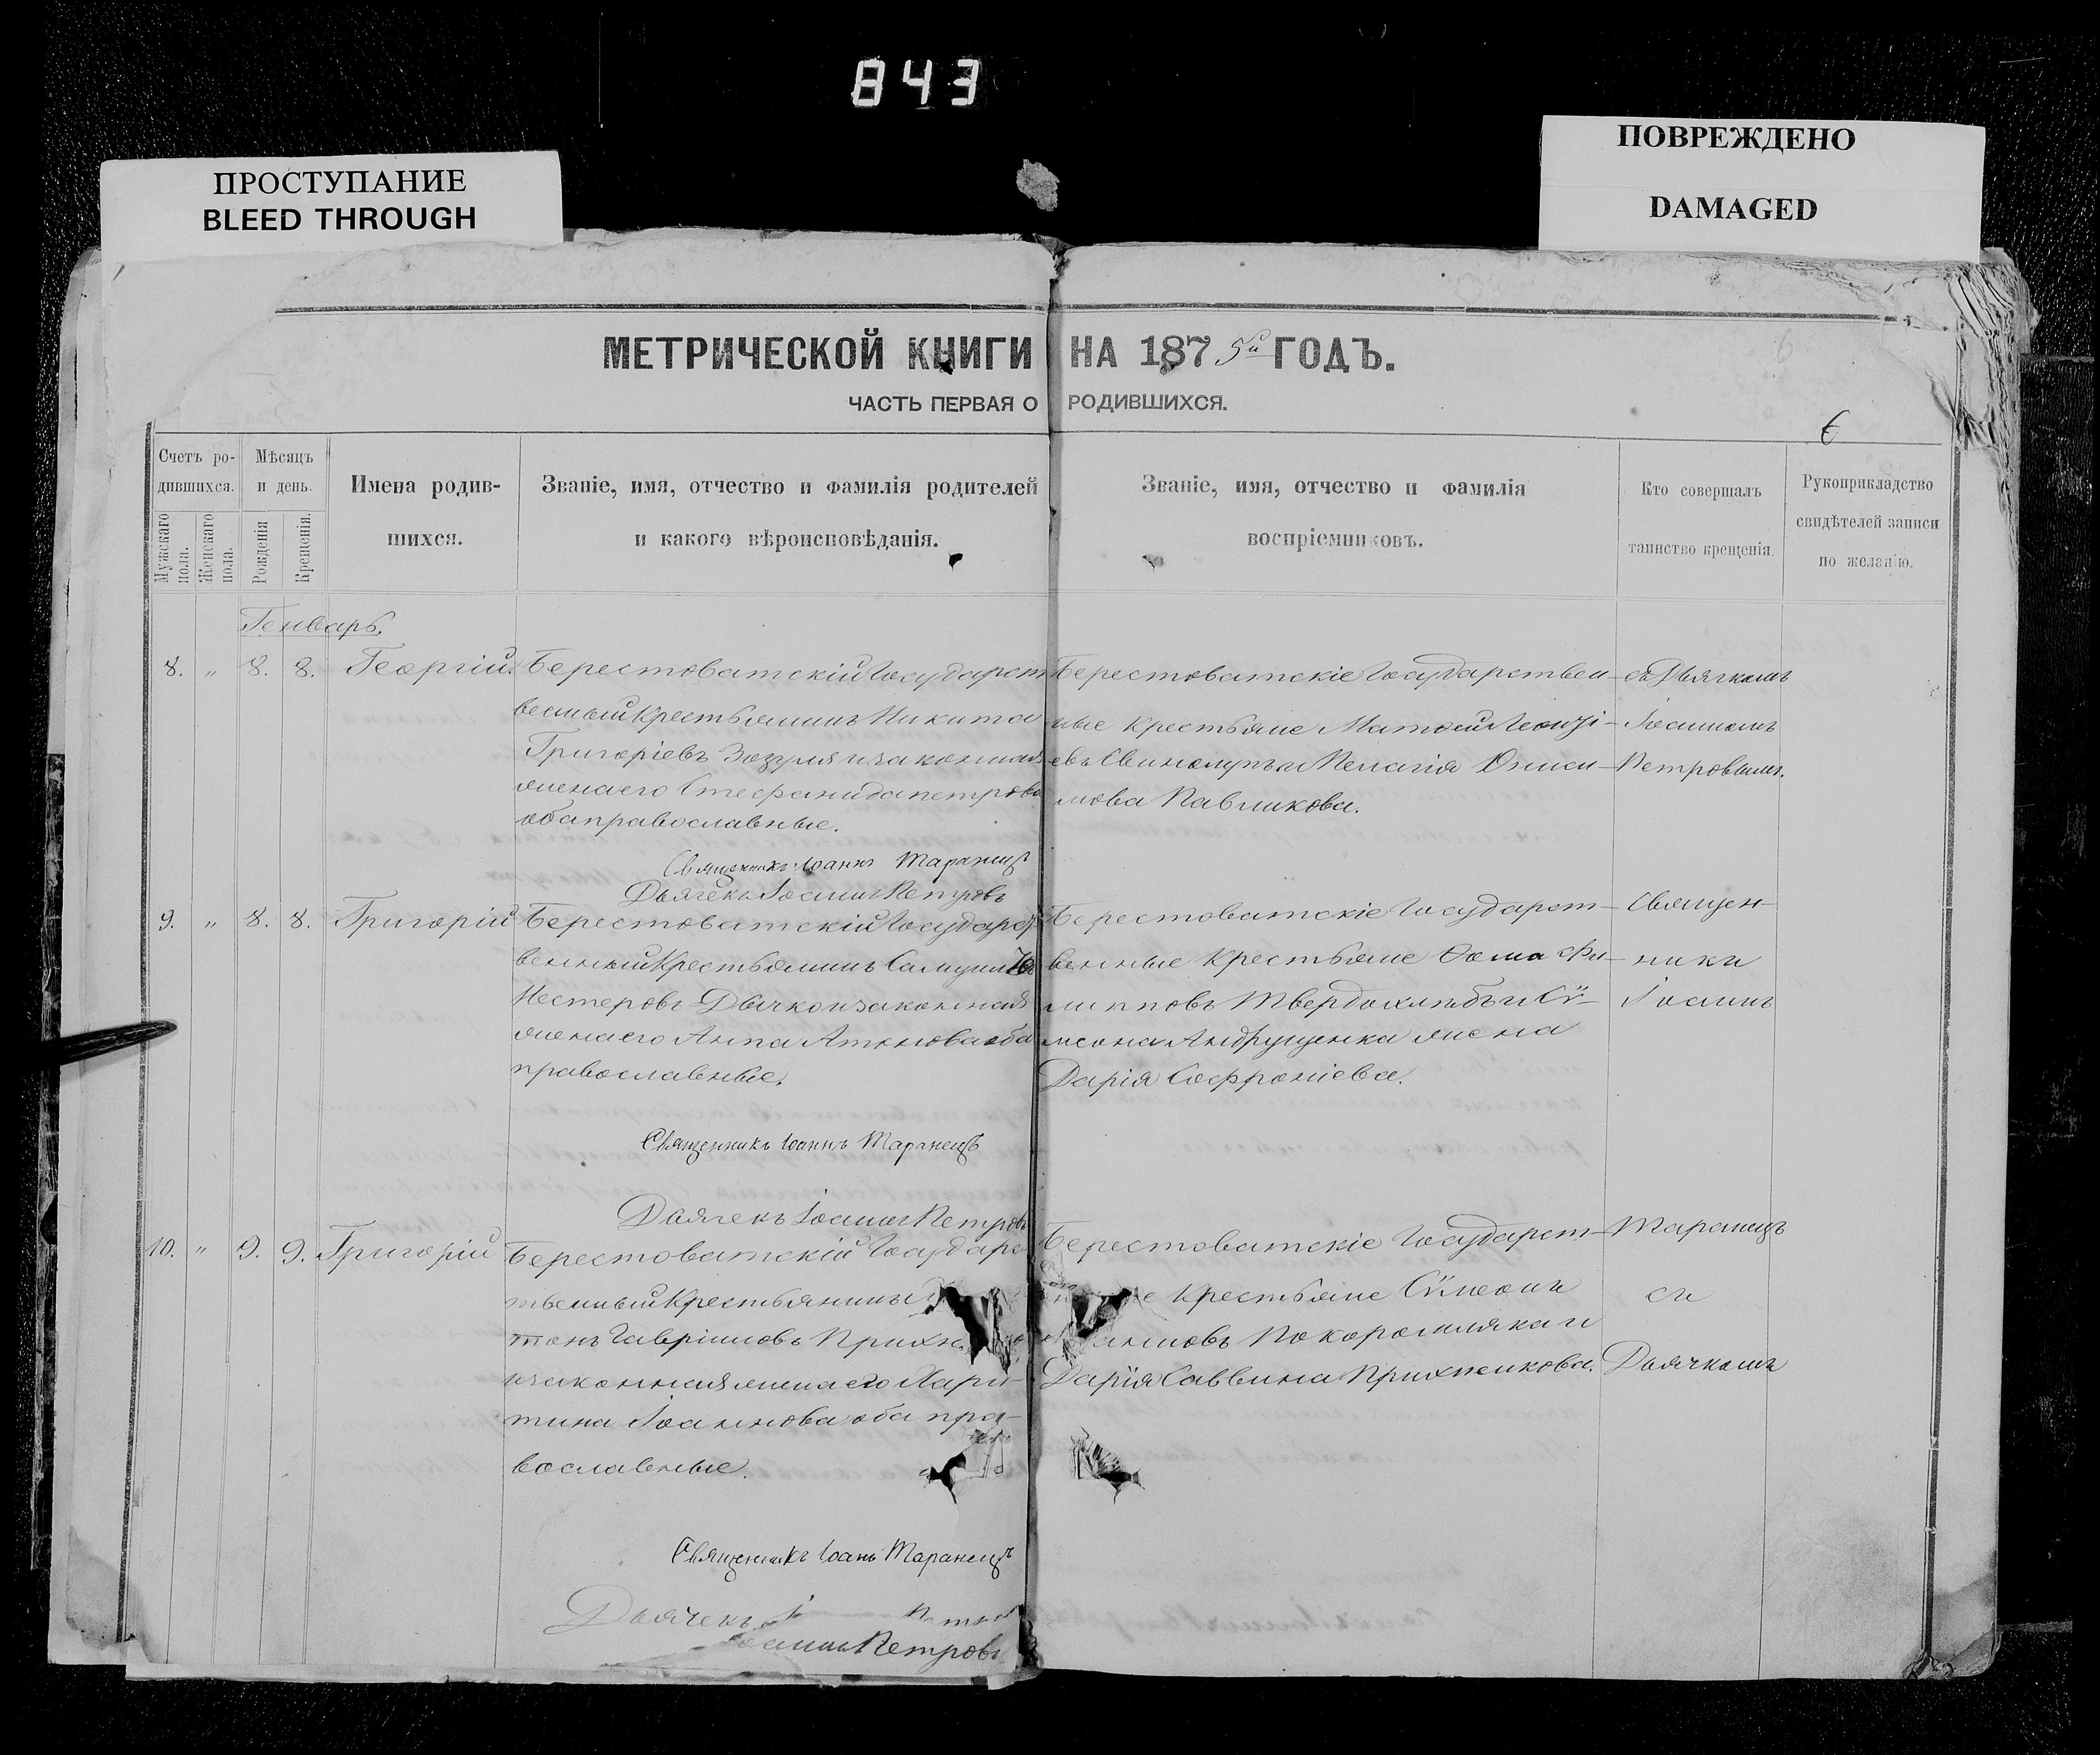 843
ПРОСТУПАНИЕ
BLEED THROUGH
ПОВРЕЖДЕНО
DAMAGED
МЕТРИЧЕСКОЙ КНИГИ НА 1875й ГОДЪ.
ЧАСТЬ ПЕРВАЯ О РОДИВШИХСЯ.
6
Счетъ ро-
дившихся.
Мужскаго пола.
Женскаго пола.
Мѣсяцъ
и день.
Рожденія
Крещенія.
Имена родив-
шихся.
Званіе, имя, отчество и фамилія родителей
и какого вѣроисповѣданія.
Званіе, имя, отчество и фамилія
воспріемниковъ.
Кто совершалъ
таинство крещенія.
Рукоприкладство
свидѣтелей записи
по желанію.
Генварь.
8. „ 8. 8. Георгій.
Берестоватскій Государст
венный Крестьянинъ Никита
Григоріевъ Зозуля и законная
жена его Стефанида Петрова
оба православные.
Священникъ Іоаннъ Таранецъ
Дьячекъ Іоаннъ Петровъ
Берестоватскіе Государствен-
ные Крестьяне
и Пелагія Ониси-
мова Павликова.
съ Дьячкомъ
Іоанномъ
Петровымъ.
9. „ 8. 8. Григорій
Берестоватскій Государст
венный Крестьянинъ
Нестеровъ Дьячко и законная
жена его Анна оба
православные.
Священникъ Іоаннъ Таранецъ
Дьячекъ Іоаннъ Петровъ
Берестоватскіе Государст-
венные Крестьяне Ѳома Фи-
липповъ Твердохлѣбъ и Сѵ-
меона Андрущенка жена
Дарія Софроніева.
Священ-
никъ
Іоаннъ
10. „ 9. 9. Григорій
Берестоватскій Государс
твенный Крестьянинъ
тонъ Гавріиловъ
и законная жена его Хари-
тина Іоаннова оба пра-
вославные.
Священникъ Іоаннъ Таранецъ
Дьячекъ
Іоаннъ Петровъ
Берестоватскіе Государст-
Крестьяне Сѵмеонъ
Дарія Саввина Прихженкова.
Таранецъ
съ
Дьячкомъ